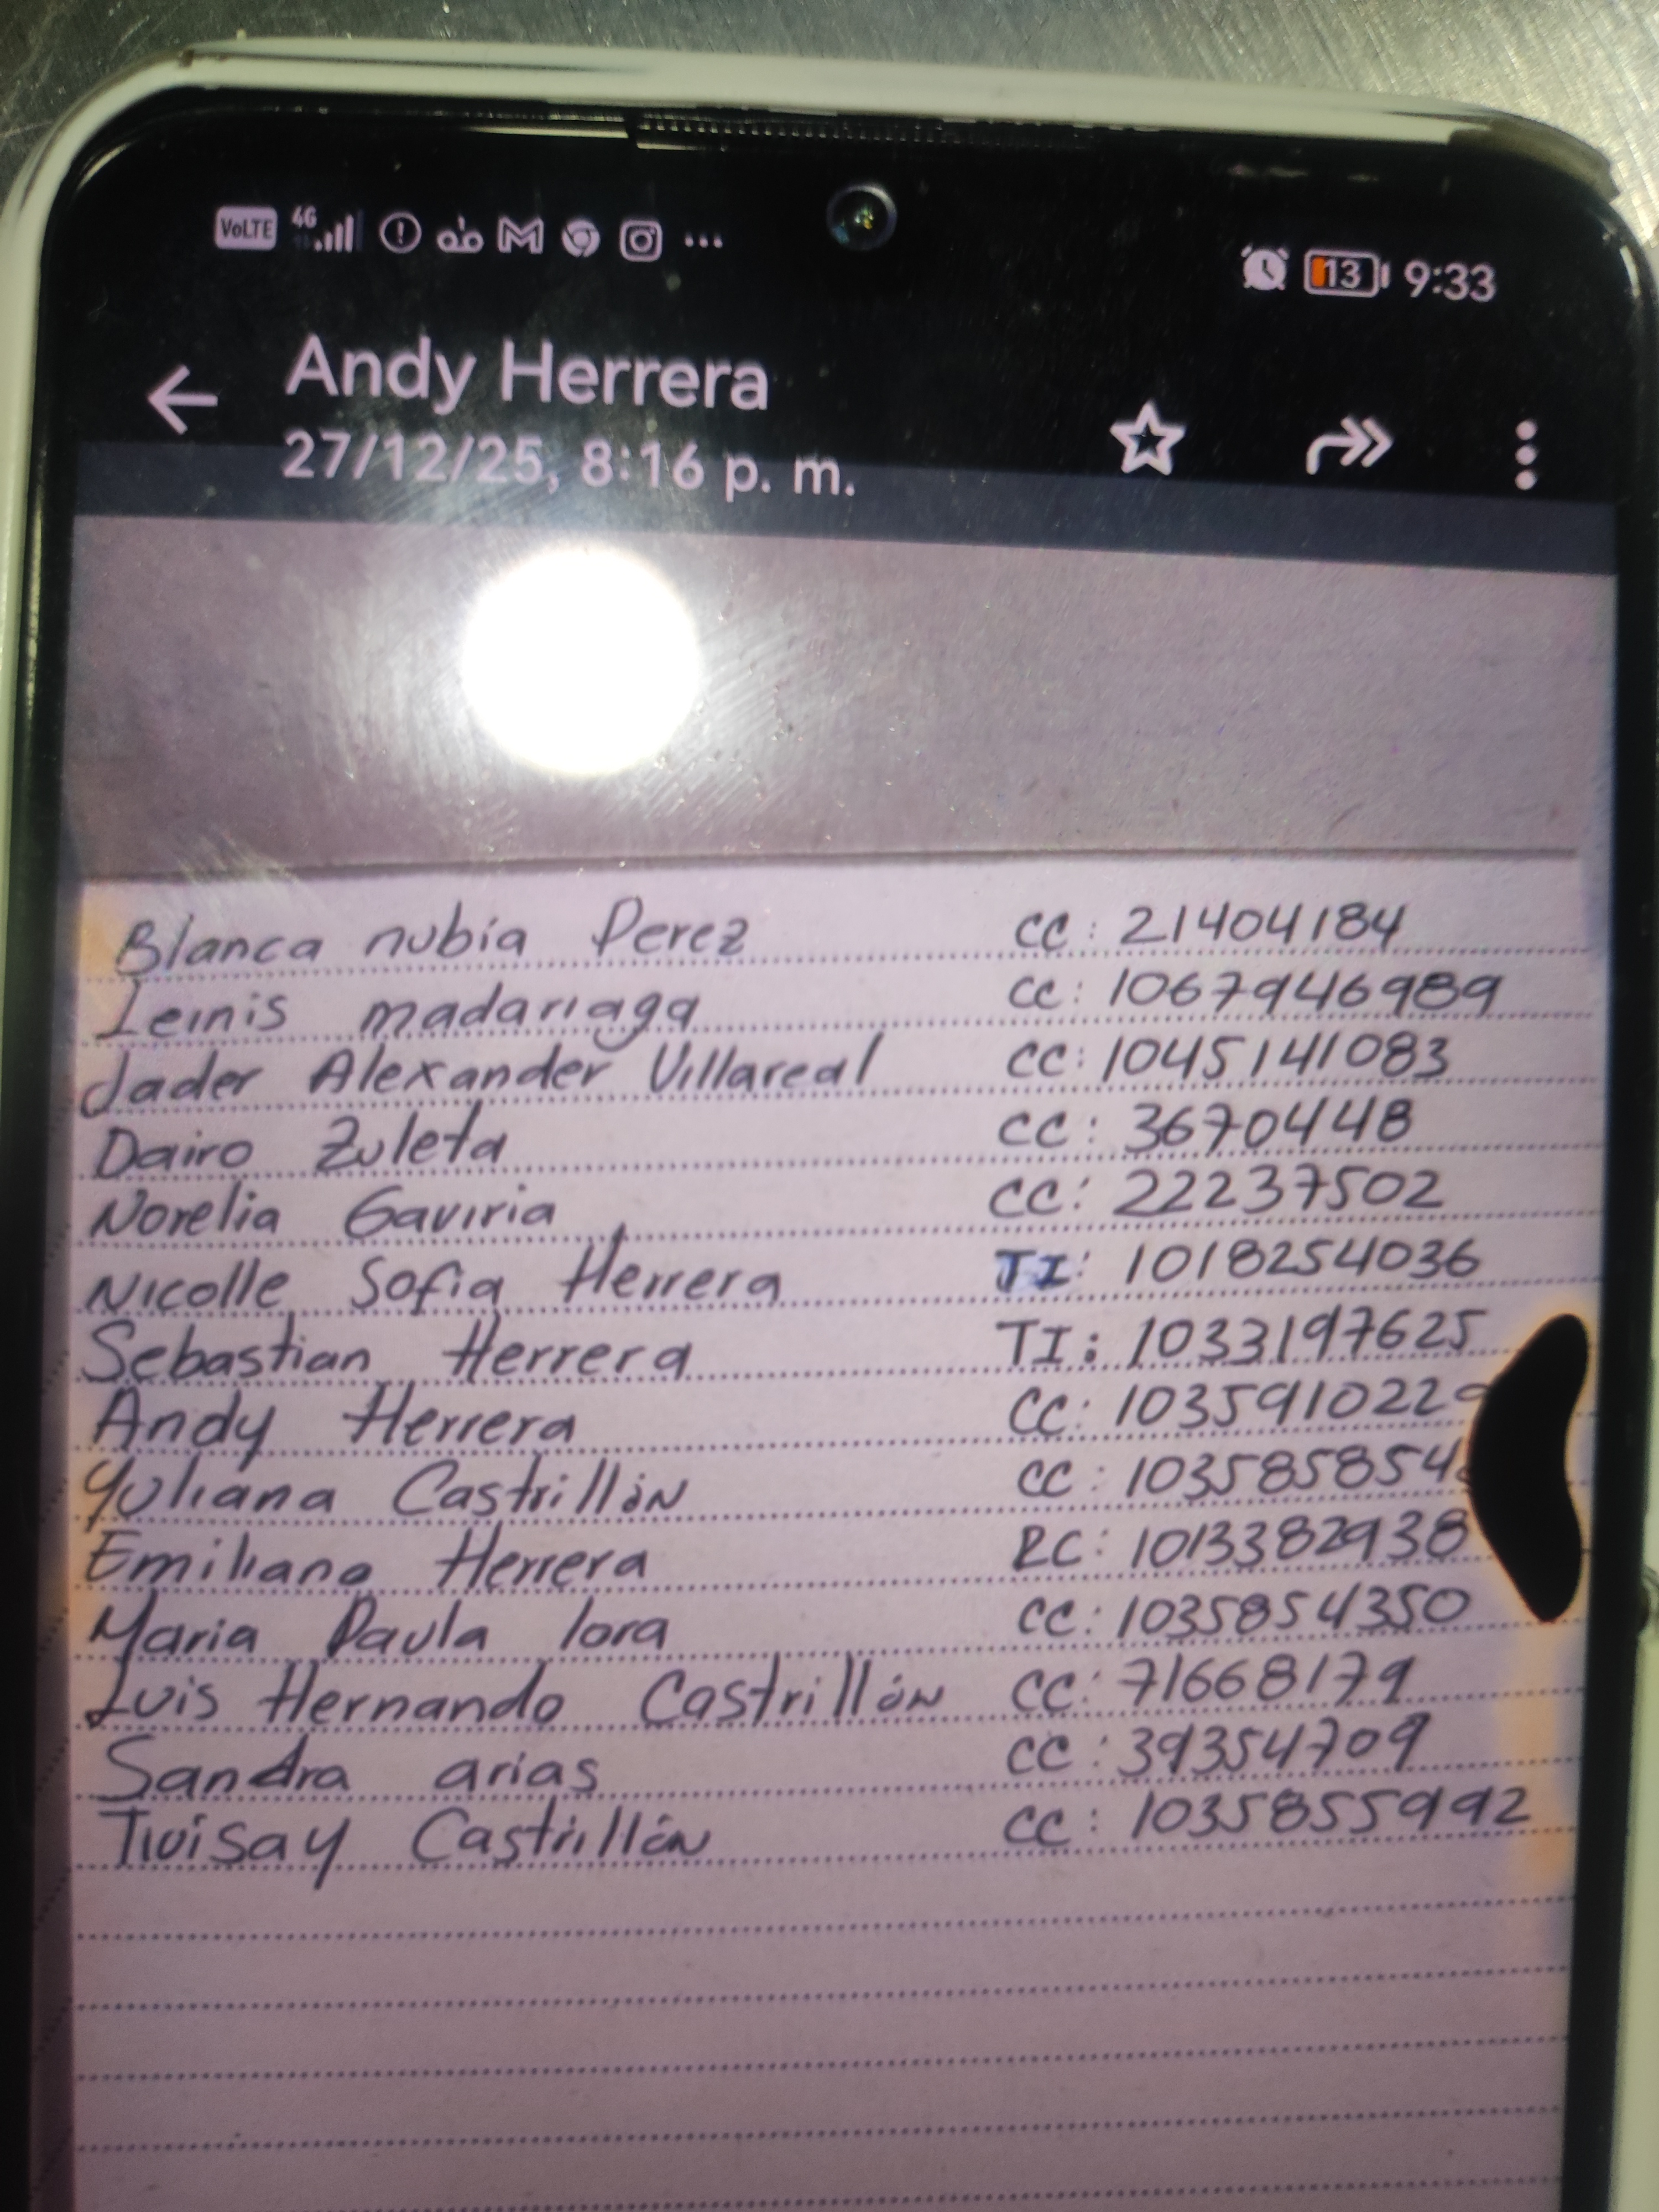 VoLTE 4G 13 9:33
Andy Herrera
27/12/25, 8:16 p. m.
Blanca nubia Perez CC: 21404184
Leinis madariaga CC: 1067946989
Jader Alexander Villareal CC: 1045141083
Dairo Zuleta CC: 3670448
Norelia Gaviria CC: 22237502
Nicolle Sofia Herrera TI: 1018254036
Sebastian Herrera TI: 1033197625
Andy Herrera CC:
Yuliana Castrillón CC:
Emiliano Herrera RC: 1013382938
Maria Paula lora CC: 1035854350
Luis Hernando Castrillón CC: 71668179
Sandra arias CC: 39354709
Castrillón CC: 1035855992